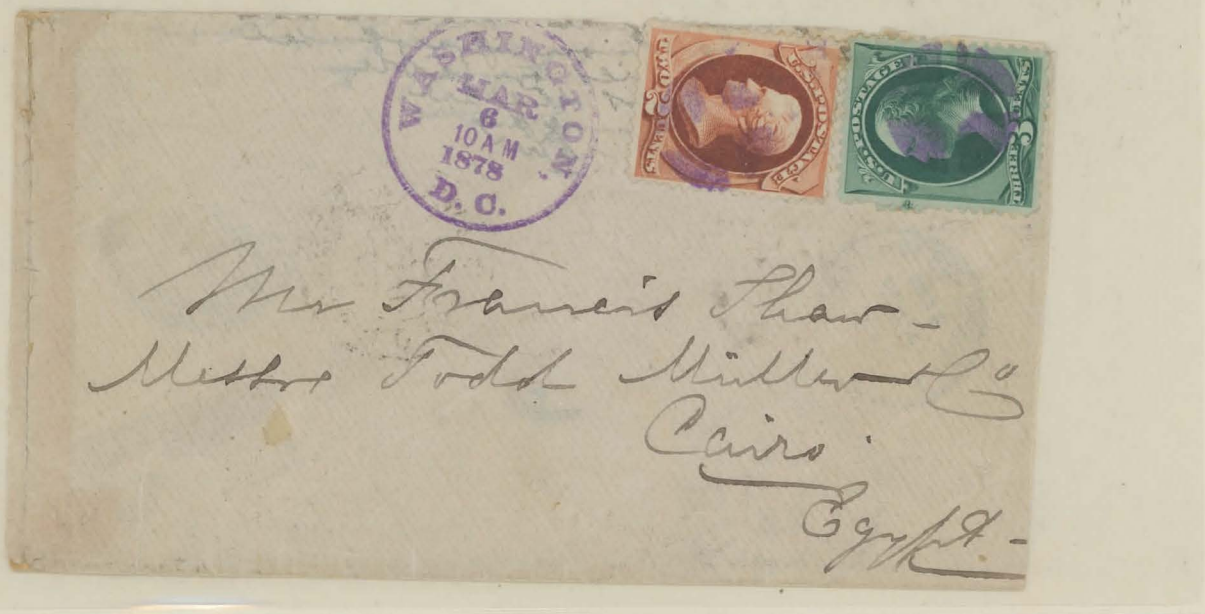 WASHINGTON.
MAR
6
10 AM
1878
D. C.
U.S. POSTAGE
U.S. POSTAGE
Mr Francis Shaw -
Messrs Todd Müller & Co
Cairo.
Egypt -